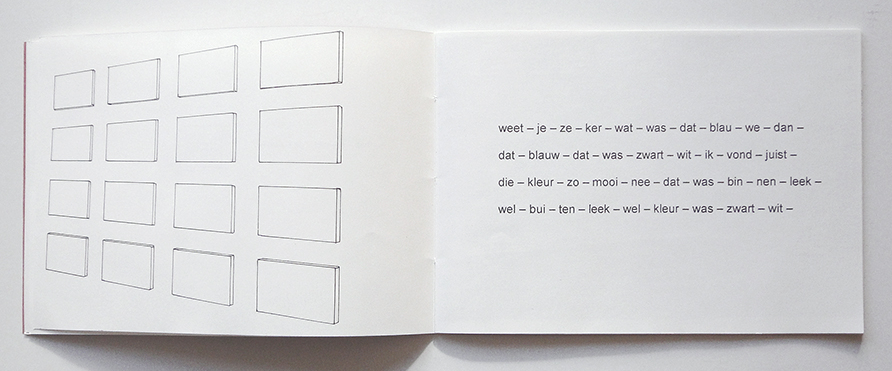 weet – je – ze – ker – wat – was – dat – blau – we – dan –
dat – blauw – dat – was – zwart – wit – ik – vond – juist –
die – kleur – zo – mooi – nee – dat – was – bin – nen – leek –
wel – bui – ten – leek – wel – kleur – was – zwart – wit –